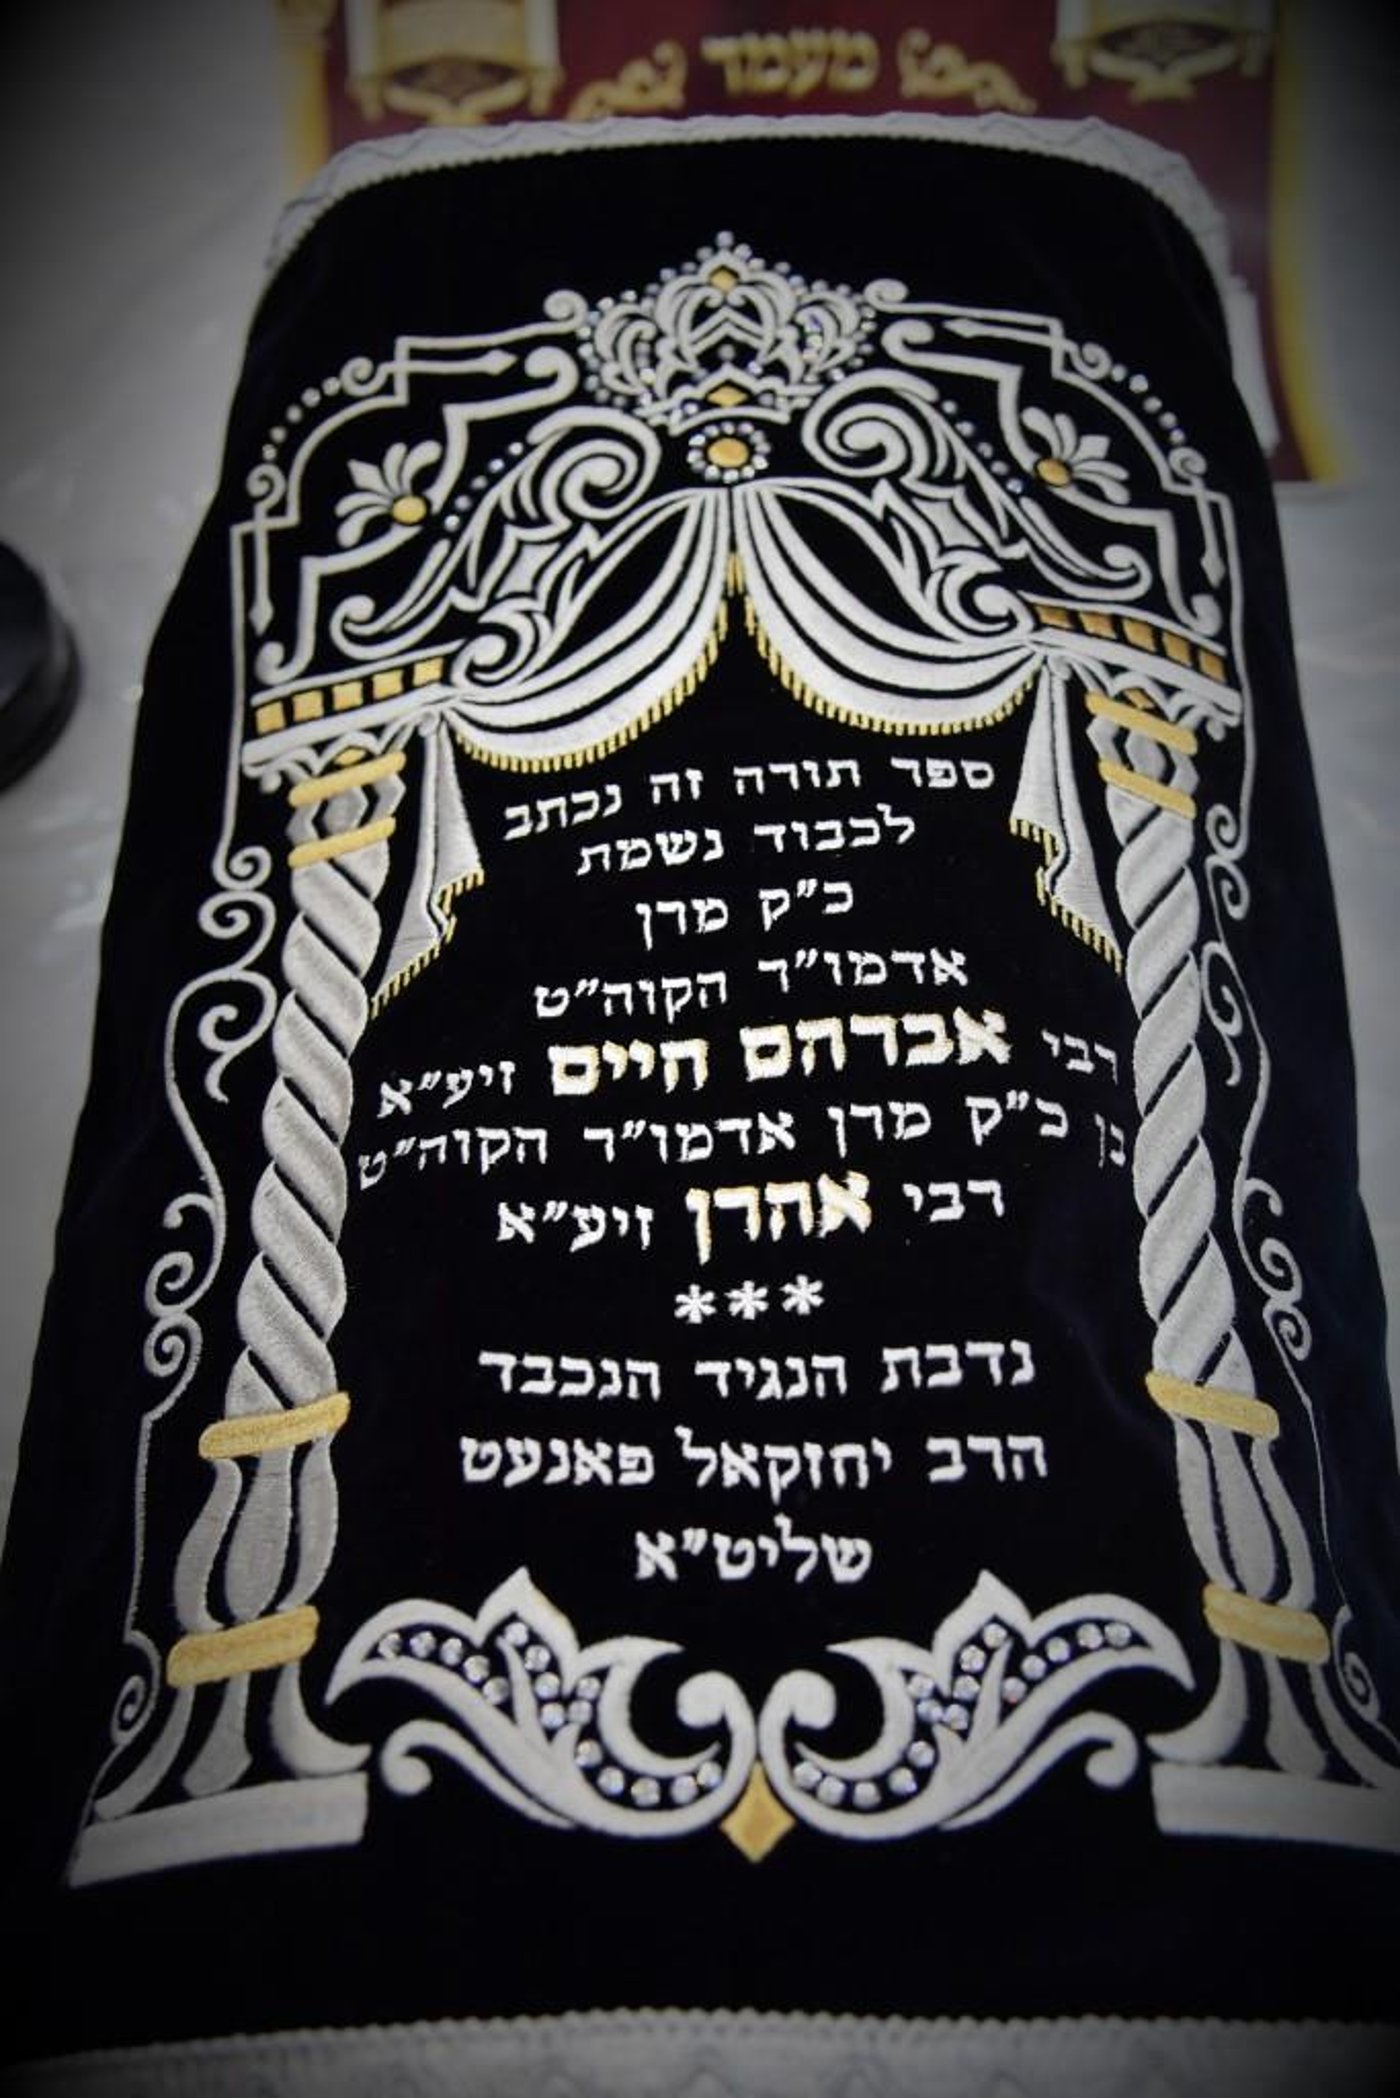 מעמד
ספר תורה זה נכתב
לכבוד נשמת
כ"ק מרן
אדמו"ר הקוה"ט
רבי אברהם חיים זיע"א
בן כ"ק מרן אדמו"ר הקוה"ט
רבי אהרן זיע"א
***
נדבת הנגיד הנכבד
הרב יחזקאל פאנעט
שליט"א